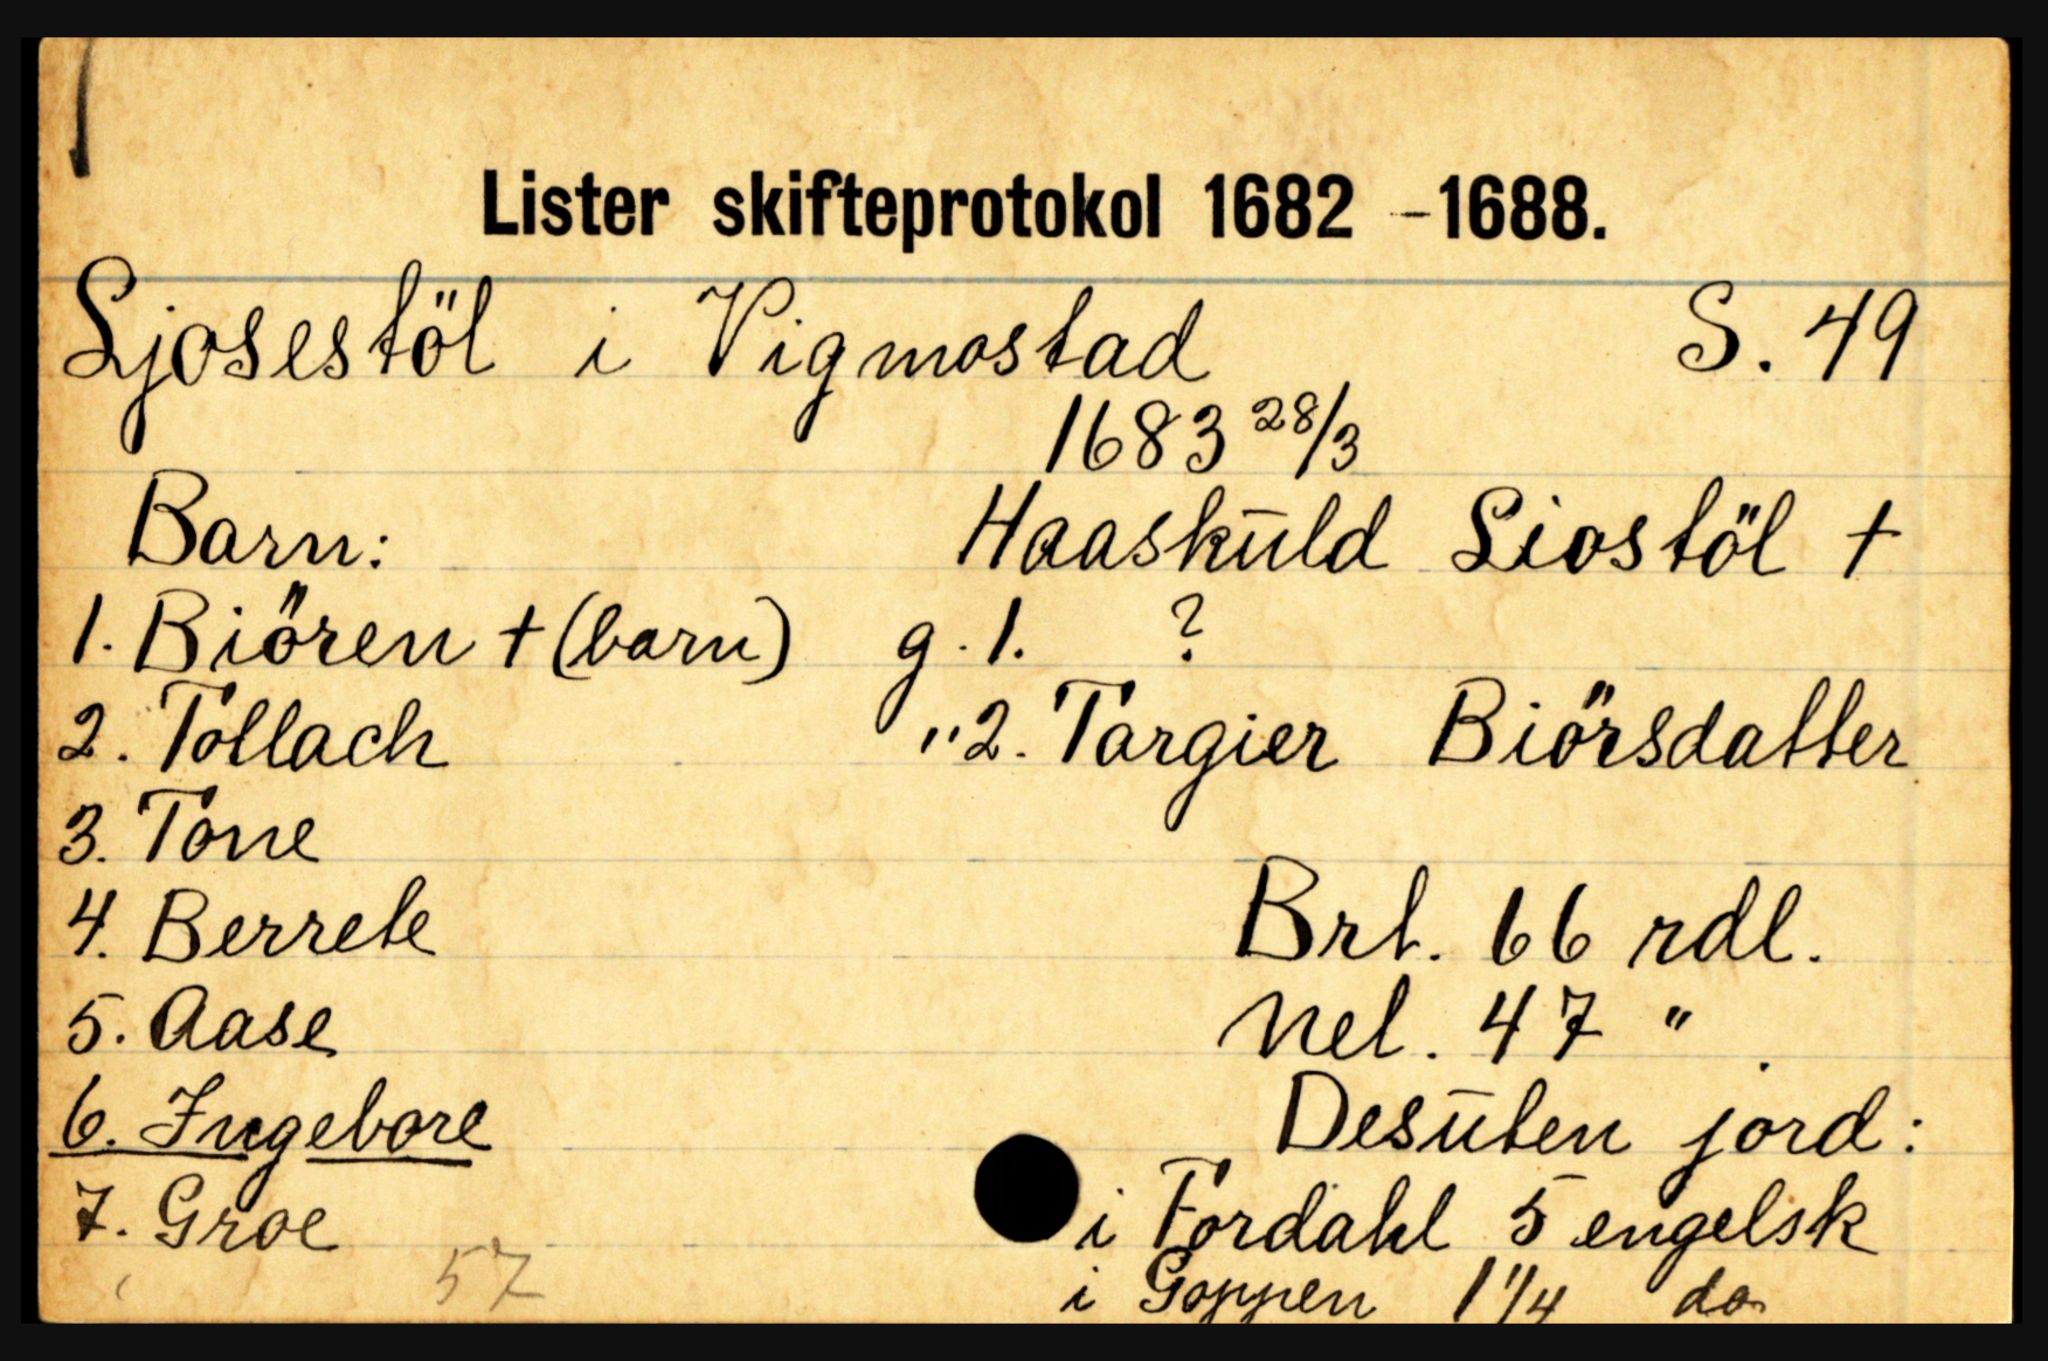 Lister skifteprotokol 1682 - 1688.
Ljosestöl i Vigmostad S. 49
1683 28/3
Barn: Haaskūld Liostöl †
1. Biören † (barn) g. 1. ?
2. Tollach " 2. Torgier Biörsdatter
3. Tone
4. Berrete Brt. 66 rdl.
5. Aase Net. 47 "
6. Ingebore Desūten jord:
7. Groe i Fordahl 5 engelsk
57 i Goppen 1 1/4 do